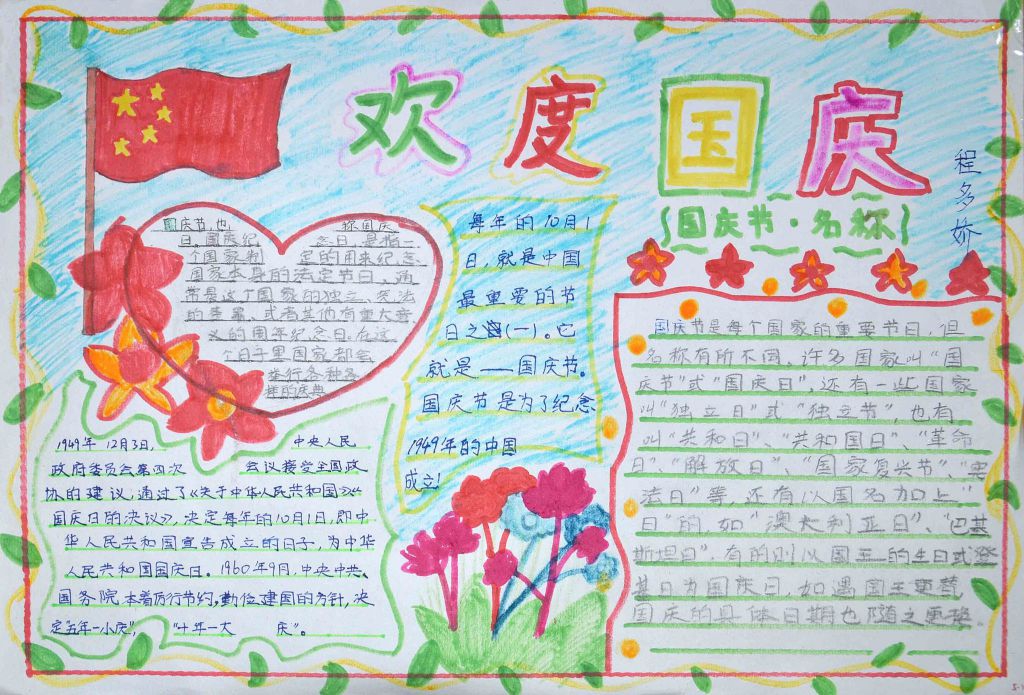 欢度国庆
程多娇
国庆节·名称
国庆节,也 称国庆
日、国庆纪 念日,是指一
个国家制 定的用来纪念
国家本身的法定节日。通
常是这个国家的独立、宪法
的签署、或者其他有重大意
义的周年纪念日。在这
个日子里国家都会
举行各种各
样的庆典
每年的10月1
日,就是中国
最重要的节
日之(一)。它
就是——国庆节。
国庆节是为了纪念
1949年的中国
成立!
1949年 12月3日, 中央人民
政府委员会第四次 会议接受全国政
协的建议,通过了《关于中华人民共和国》《
国庆日的决议》,决定每年的10月1日,即中
华人民共和国宣告成立的日子,为中华
人民共和国国庆日。1960年9月,中央中共、
国务院本着厉行节约,勤俭建国的方针,决
定"五年一小庆", "十年一大 庆"。
国庆节是每个国家的重要节日,但
名称有所不同。许多国家叫"国
庆节"或"国庆日",还有一些国家
叫"独立日"或"独立节",也有
叫"共和日"、"共和国日"、"革命
日"、"解放日"、"国家复兴节"、"宪
法日"等,还有以国名加上"
日"的,如"澳大利亚日"、"巴基
斯坦日",有的则以国王的生日或登
基日为国庆日,如遇国王更替,
国庆的具体日期也随之更换。